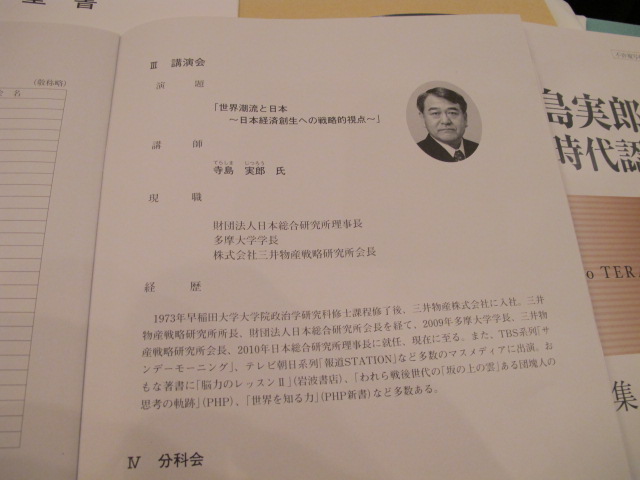 書
(敬称略)
名
Ⅲ 講演会
演 題
「世界潮流と日本
～日本経済創生への戦略的視点～」
講 師
てらしま じつろう
寺島 実郎 氏
現 職
財団法人日本総合研究所理事長
多摩大学学長
株式会社三井物産戦略研究所会長
経 歴
1973年早稲田大学大学院政治学研究科修士課程修了後、三井物産株式会社に入社。三井
物産戦略研究所所長、財団法人日本総合研究所会長を経て、2009年多摩大学学長、三井物
産戦略研究所会長、2010年日本総合研究所理事長に就任、現在に至る。また、TBS系列「サ
ンデーモーニング」、テレビ朝日系列「報道STATION」など多数のマスメディアに出演。お
もな著書に「脳力のレッスンⅡ」(岩波書店)、「われら戦後世代の「坂の上の雲」ある団塊人の
思考の軌跡」(PHP)、「世界を知る力」(PHP新書)など多数ある。
Ⅳ 分科会
島実郎
時代認
o TER
集